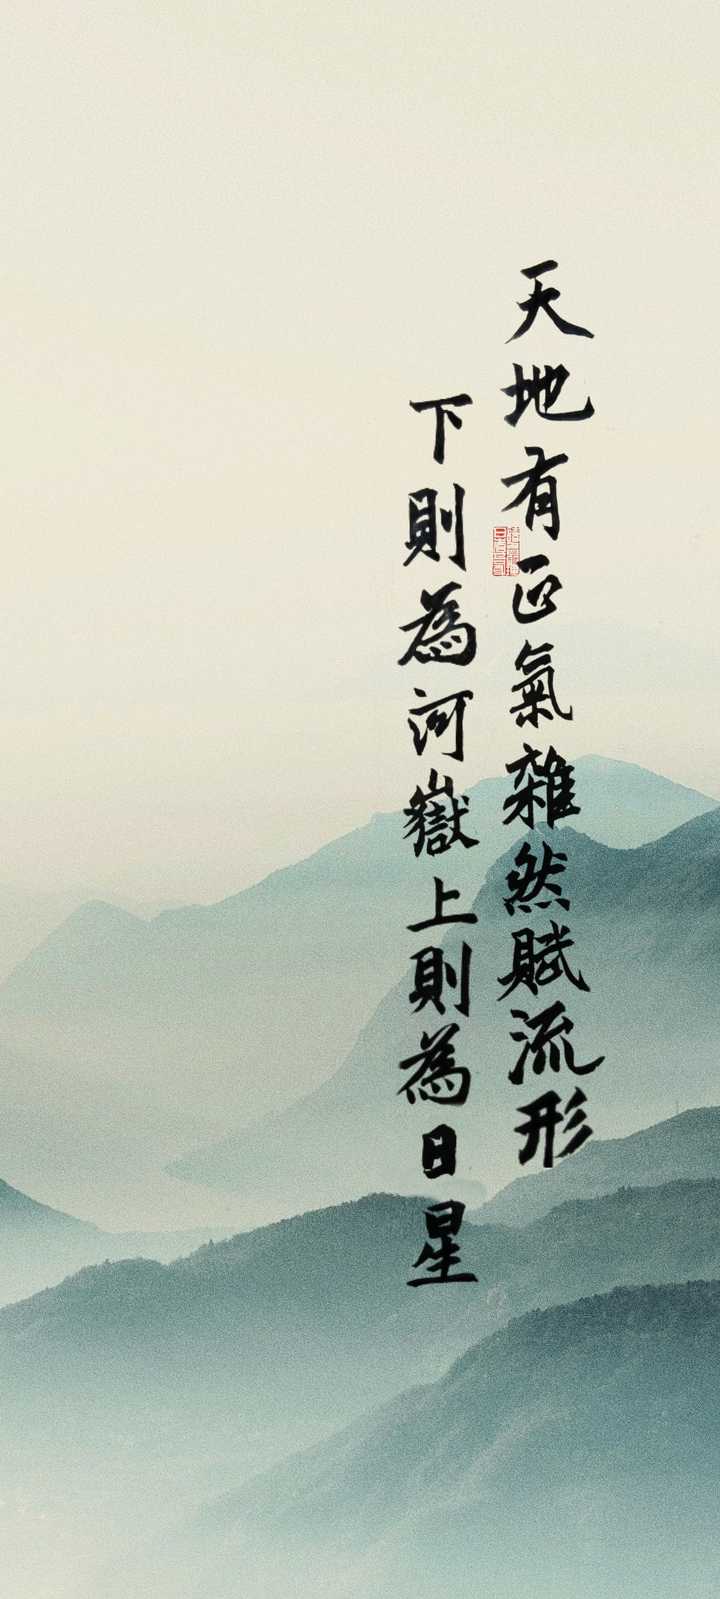 天地有正氣雜然賦流形
下則為河嶽上則為日星